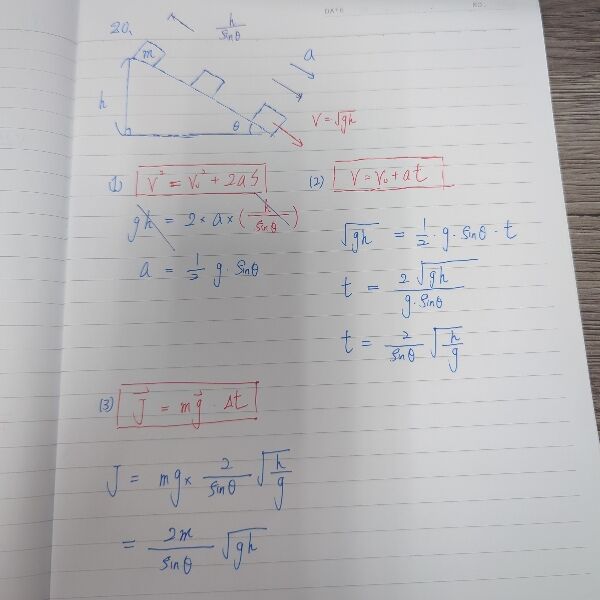 DATE NO.
20. h/sinθ
m a
h θ V=√gh
(1) V²=V₀²+2aS
gh = 2×a×(h/sinθ)
a = 1/2 g·sinθ
(2) V=V₀+at
√gh = 1/2·g·sinθ·t
t = 2√gh/g·sinθ
t = 2/sinθ √h/g
(3) J⃗ = mg⃗·Δt
J = mg× 2/sinθ √h/g
= 2m/sinθ √gh